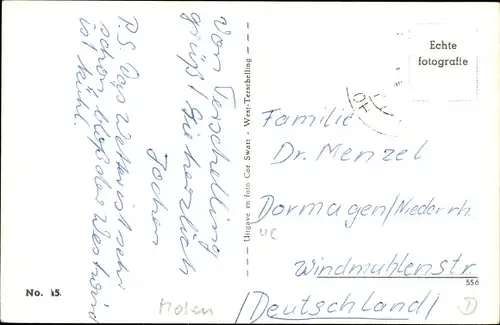 Von Terschelling
grüßt Sie herzlich
Jochen
P.S. Das Wetter ist sehr
schön bloß der Westwind
ist kühl.
Uitgave en foto Cor Swart - West-Terschelling
Echte
fotografie
Familie
Dr. Menzel
Dormagen/Niederrh.
Windmühlenstr.
(Deutschland)
No. 15.
556
Molen